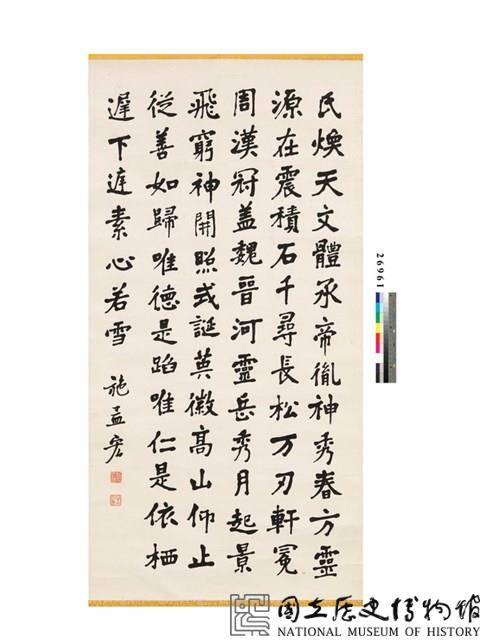 氏煥天文體承帝胤神秀春方靈
源在震積石千尋長松万刃軒冕
周漢冠盖魏晉河靈岳秀月起景
飛窮神開照式誕英徽高山仰止
從善如歸唯德是蹈唯仁是依栖
遲下庭素心若雪 施孟宏
26961
國立歷史博物館
NATIONAL MUSEUM OF HISTORY